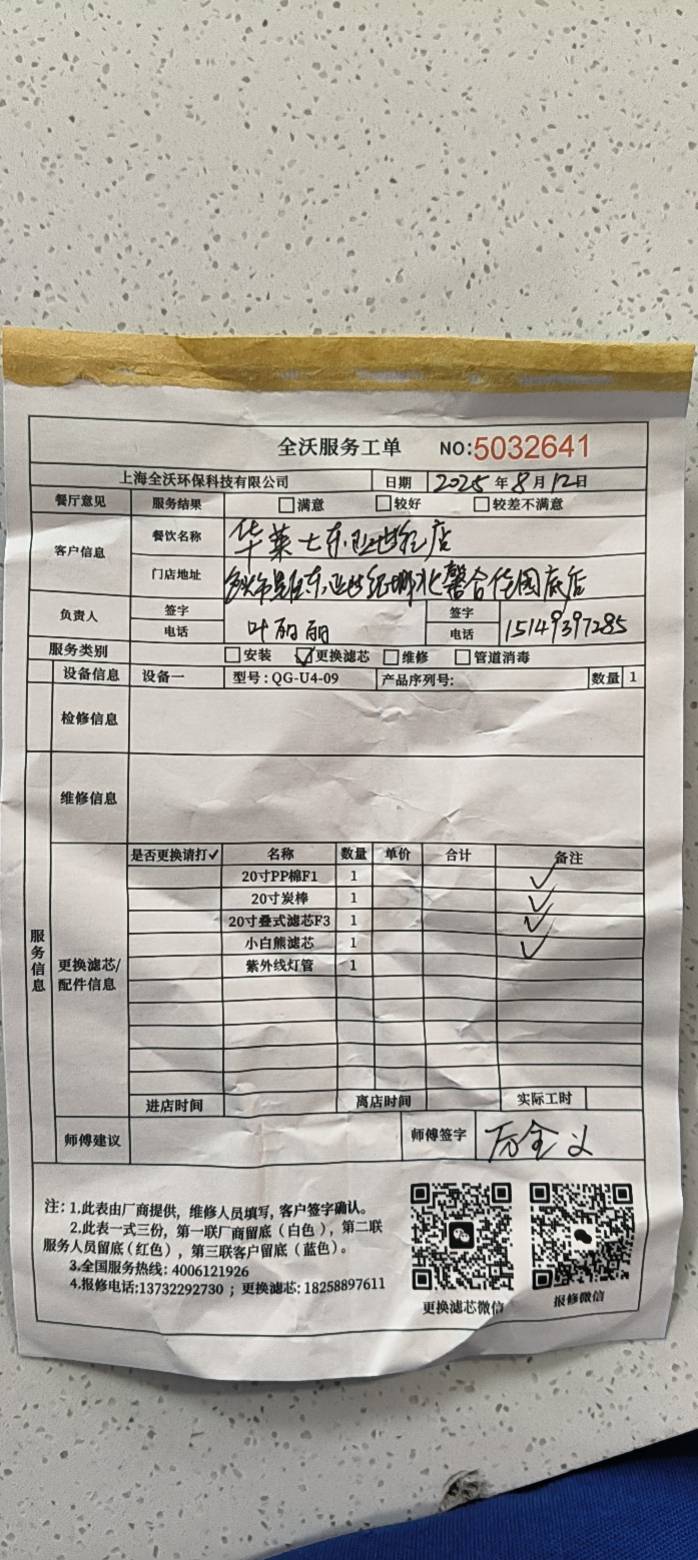 全沃服务工单 NO:5032641
上海全沃环保科技有限公司 日期 2025年8月12日
餐厅意见 服务结果 满意 较好 较差不满意
客户信息 餐饮名称 华莱士东亚世纪店
门店地址
负责人 签字 电话 叶丽丽 签字 电话 15149397285
服务类别 安装 ✓更换滤芯 维修 管道消毒
设备信息 设备一 型号:QG-U4-09 产品序列号: 数量 1
检修信息
维修信息
服务信息
更换滤芯/配件信息
是否更换请打✓ 名称 数量 单价 合计 备注
20寸PP棉F1 1 ✓
20寸炭棒 1 ✓
20寸叠式滤芯F3 1 ✓
小白熊滤芯 1 ✓
紫外线灯管 1
进店时间 离店时间 实际工时
师傅建议 师傅签字
注: 1.此表由厂商提供, 维修人员填写, 客户签字确认。
2.此表一式三份, 第一联厂商留底(白色), 第二联
服务人员留底(红色), 第三联客户留底(蓝色)。
3.全国服务热线: 4006121926
4.报修电话:13732292730 ; 更换滤芯: 18258897611
更换滤芯微信 报修微信